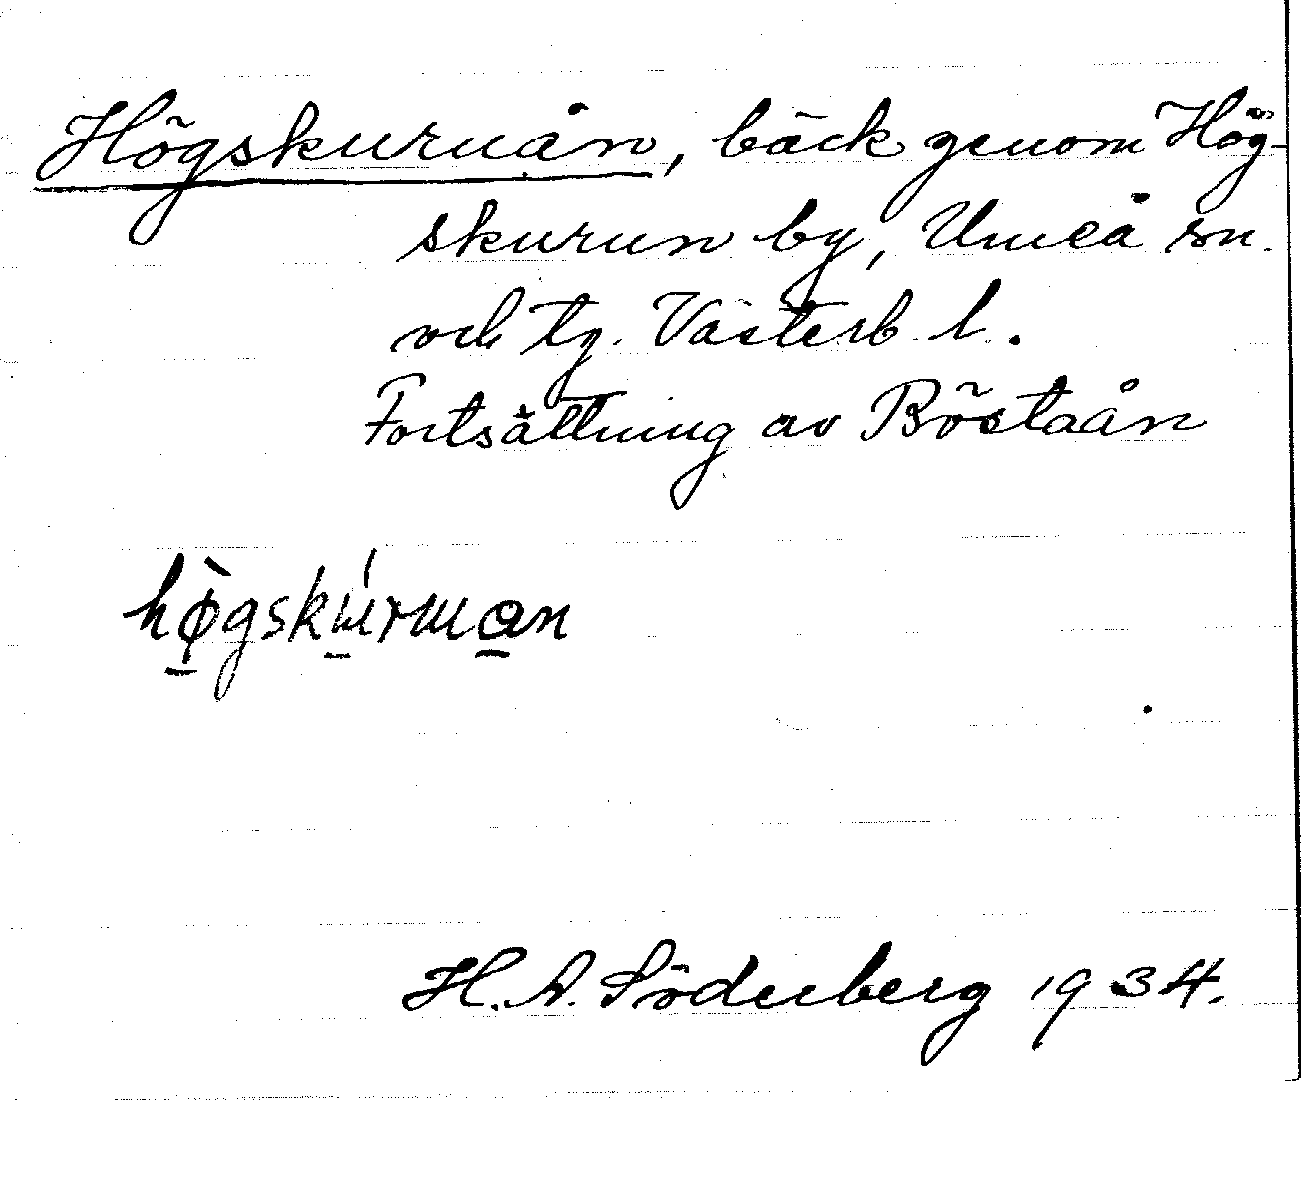 Högskuruån, bäck genom Hög-
skurun by, Umeå sn.
och tg. Västerb. l.
Fortsättning av Böstaån
H. A. Söderberg 1934.